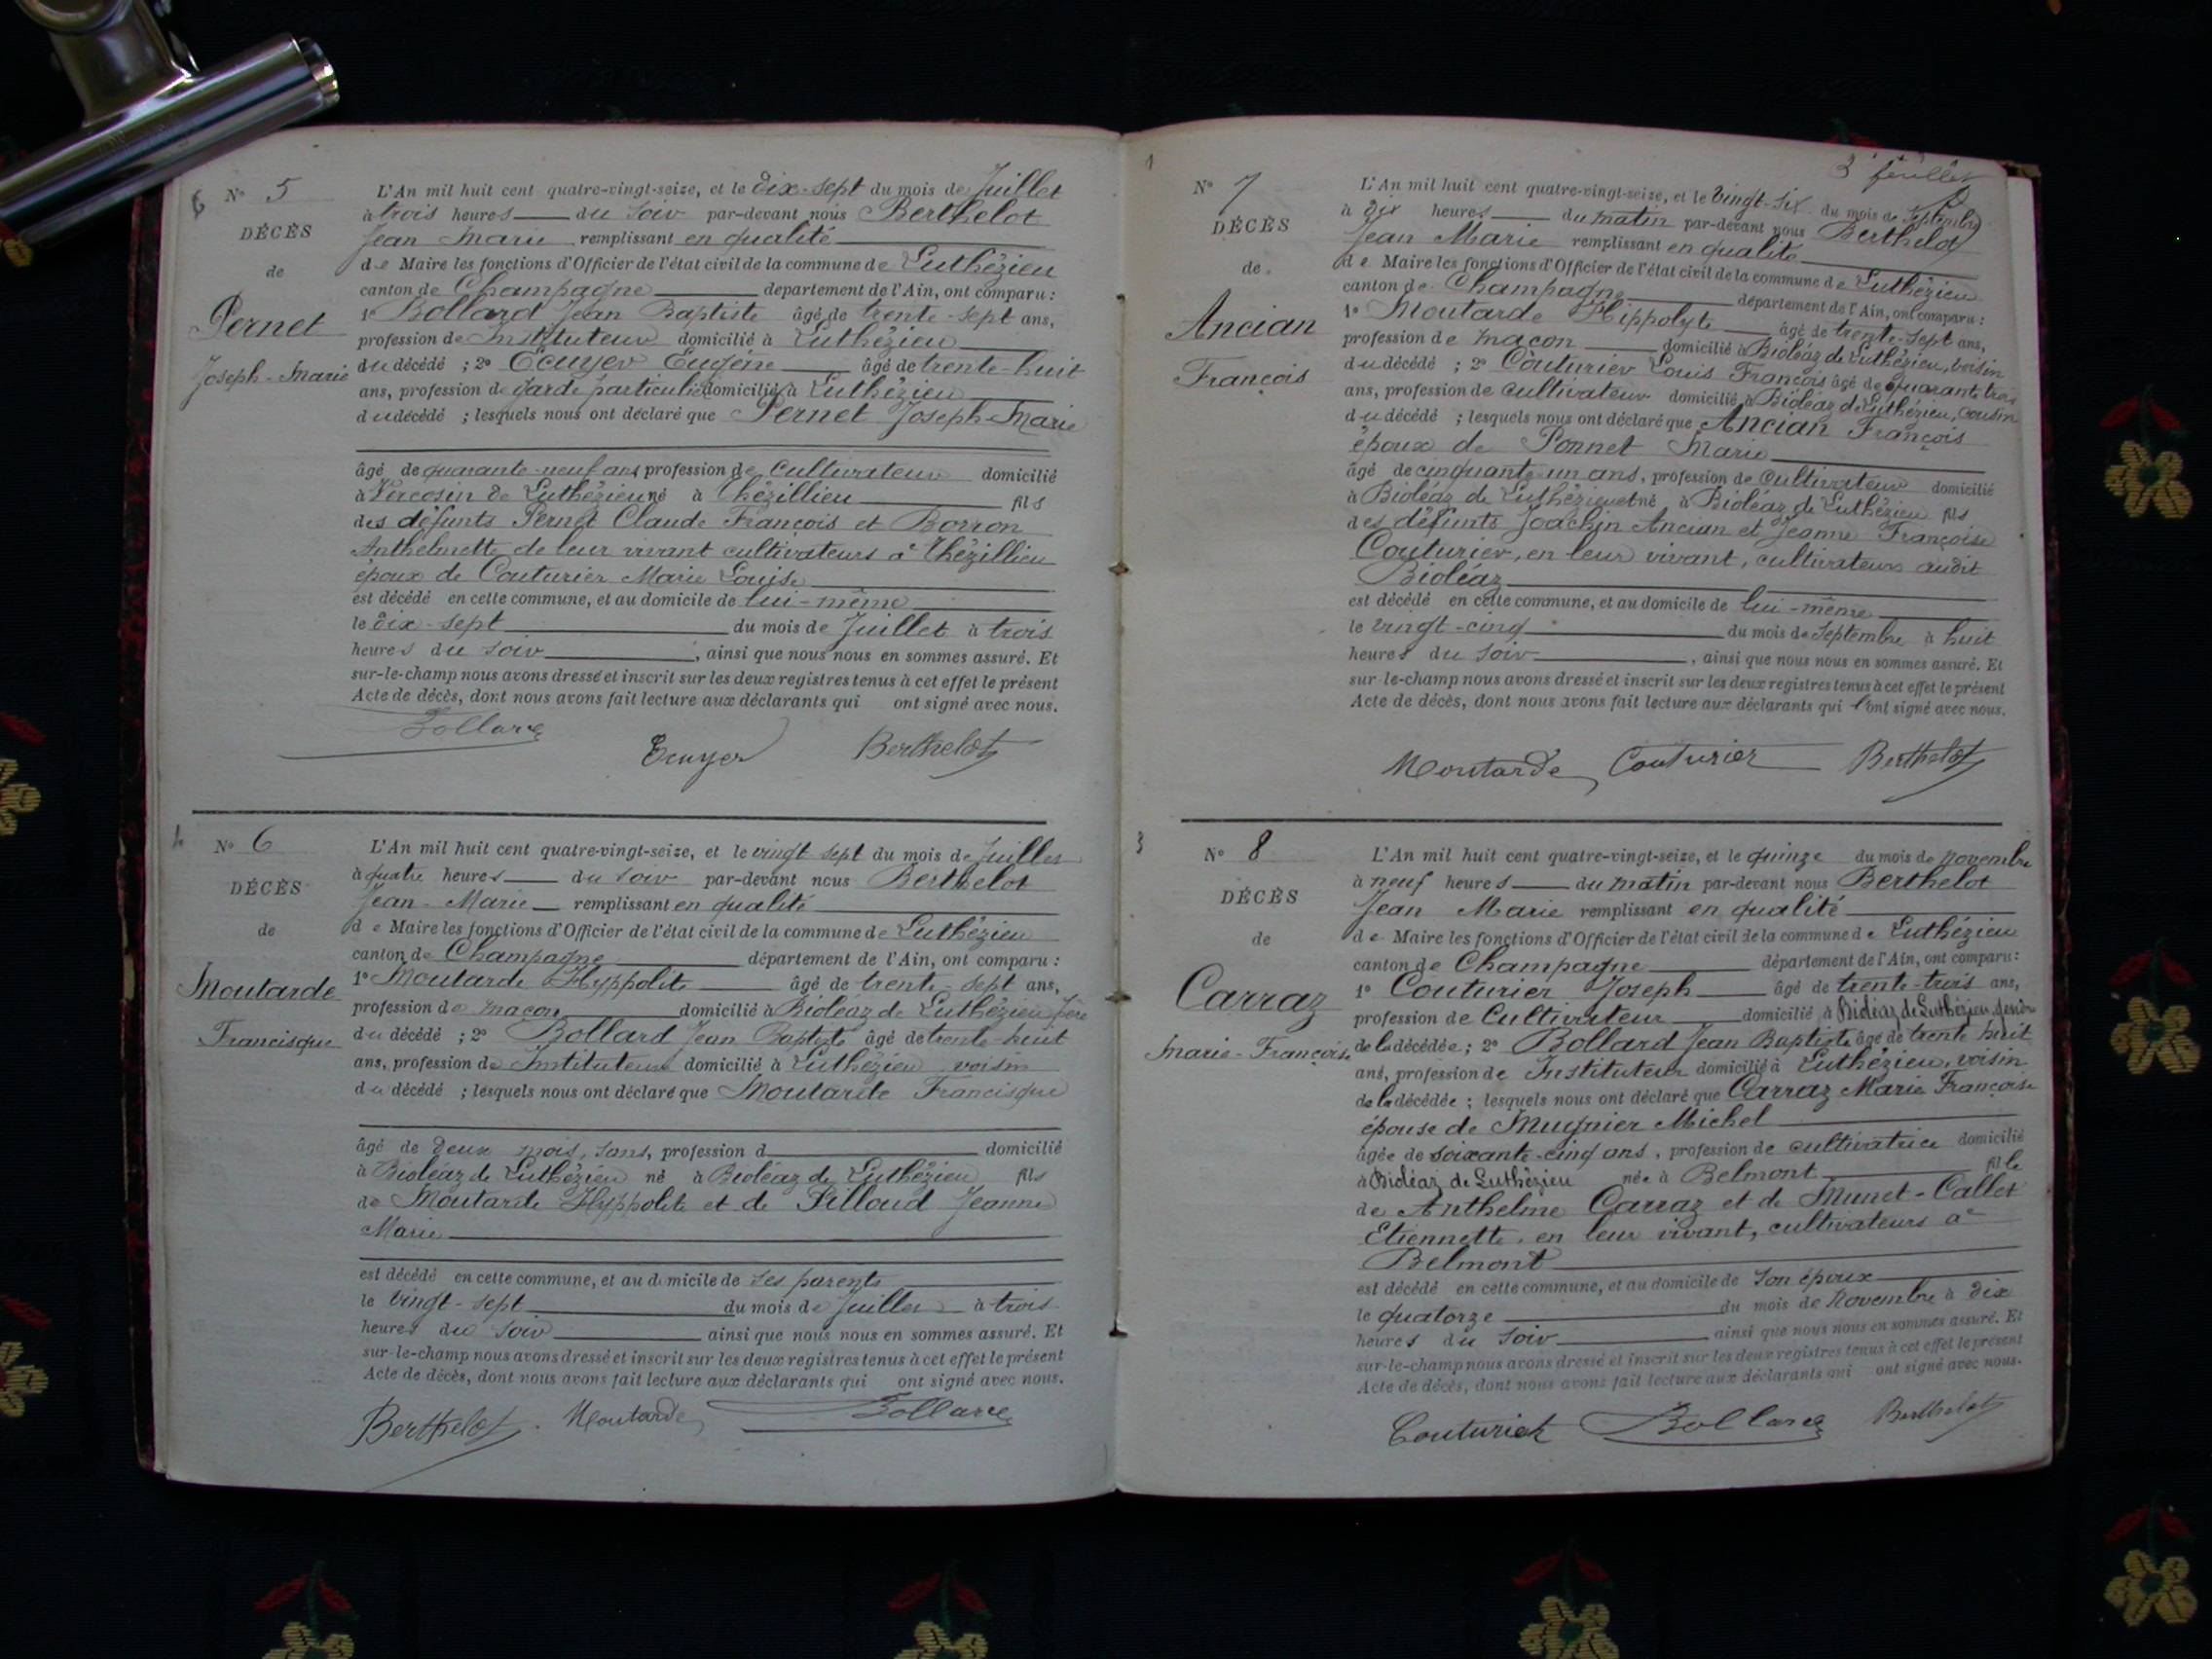 6
N° 5
DÉCÈS
de
Pernet
Joseph-Marie
L'An mil huit cent quatre-vingt-seize, et le dix-sept du mois de Juillet
à trois heures du soir par-devant nous Berthelot
Jean Marie remplissant en qualité
de Maire les fonctions d'Officier de l'état civil de la commune de Luthézieu
canton de Champagne département de l'Ain, ont comparu :
1° Bollard Jean Baptiste âgé de trente-sept ans,
profession de Instituteur domicilié à Luthézieu
du décédé ; 2° Ecuyer Eugène âgé de trente-huit
ans, profession de garde particulier domicilié à Luthézieu
du décédé ; lesquels nous ont déclaré que Pernet Joseph-Marie
âgé de quarante-neuf ans, profession de Cultivateur domicilié
à Vercosin de Luthézieu né à Thézillieu fils
des défunts Pernet Claude François et Borron
Anthelmette de leur vivant cultivateurs à Thézillieu
époux de Couturier Marie Louise
est décédé en cette commune, et au domicile de lui-même
le dix-sept du mois de Juillet à trois
heures du soir, ainsi que nous nous en sommes assuré. Et
sur-le-champ nous avons dressé et inscrit sur les deux registres tenus à cet effet le présent
Acte de décès, dont nous avons fait lecture aux déclarants qui ont signé avec nous.
Bollard Ecuyer Berthelot
N° 6
DÉCÈS
de
Moutarde
Francisque
L'An mil huit cent quatre-vingt-seize, et le vingt sept du mois de Juillet
à quatre heures du soir par-devant nous Berthelot
Jean-Marie remplissant en qualité
de Maire les fonctions d'Officier de l'état civil de la commune de Luthézieu
canton de Champagne département de l'Ain, ont comparu :
1° Moutarde Hyppolite âgé de trente-sept ans,
profession de maçon domicilié à Bioléaz de Luthézieu père
du décédé ; 2° Bollard Jean Baptiste âgé de trente-huit
ans, profession de Instituteur domicilié à Luthézieu voisin
du décédé ; lesquels nous ont déclaré que Moutarde Francisque
âgé de deux mois, sans, profession d domicilié
à Bioléaz de Luthézieu né à Bioléaz de Luthézieu fils
de Moutarde Hyppolite et de Pilloud Jeanne
Marie
est décédé en cette commune, et au domicile de ses parents
le vingt-sept du mois de Juillet à trois
heures du soir ainsi que nous nous en sommes assuré. Et
sur-le-champ nous avons dressé et inscrit sur les deux registres tenus à cet effet le présent
Acte de décès, dont nous avons fait lecture aux déclarants qui ont signé avec nous.
Berthelot Moutarde Bollard
1
3e feuillet
N° 7
DÉCÈS
de
Ancian
François
L'An mil huit cent quatre-vingt-seize, et le vingt-six du mois de Septembre
à dix heures du matin par-devant nous Berthelot
Jean Marie remplissant en qualité
de Maire les fonctions d'Officier de l'état civil de la commune de Luthézieu
canton de Champagne département de l'Ain, ont comparu :
1° Moutarde Hippolyte âgé de trente-sept ans,
profession de maçon domicilié à Bioléaz de Luthézieu, voisin
du décédé ; 2° Couturier Louis François âgé de quarante trois
ans, profession de cultivateur domicilié à Bioléaz de Luthézieu, cousin
du décédé ; lesquels nous ont déclaré que Ancian François
époux de Ponnet Marie
âgé de cinquante-un ans, profession de Cultivateur domicilié
à Bioléaz de Luthézieu et né à Bioléaz de Luthézieu fils
des défunts Joachin Ancian et Jeanne Françoise
Couturier, en leur vivant, cultivateurs audit
Bioléaz
est décédé en cette commune, et au domicile de lui-même
le vingt-cinq du mois de Septembre à huit
heures du soir, ainsi que nous nous en sommes assuré. Et
sur-le-champ nous avons dressé et inscrit sur les deux registres tenus à cet effet le présent
Acte de décès, dont nous avons fait lecture aux déclarants qui l'ont signé avec nous.
Moutarde Couturier Berthelot
3
N° 8
DÉCÈS
de
Carraz
Marie-Françoise
L'An mil huit cent quatre-vingt-seize, et le quinze du mois de novembre
à neuf heures du matin par-devant nous Berthelot
Jean Marie remplissant en qualité
de Maire les fonctions d'Officier de l'état civil de la commune de Luthézieu
canton de Champagne département de l'Ain, ont comparu :
1° Couturier Joseph âgé de trente-trois ans,
profession de Cultivateur domicilié à Bioléaz de Luthézieu,
de la décédée ; 2° Bollard Jean Baptiste âgé de trente huit
ans, profession de Instituteur domicilié à Luthézieu, voisin
de la décédée ; lesquels nous ont déclaré que Carraz Marie Françoise
épouse de Mugnier Michel
âgée de soixante-cinq ans, profession de cultivatrice domicilié
à Bioléaz de Luthézieu née à Belmont fille
de Anthelme Carraz et de Munet-Callet
Etiennette, en leur vivant, cultivateurs à
Belmont
est décédé en cette commune, et au domicile de son époux
le quatorze du mois de Novembre à dix
heures du soir ainsi que nous nous en sommes assuré. Et
sur-le-champ nous avons dressé et inscrit sur les deux registres tenus à cet effet le présent
Acte de décès, dont nous avons fait lecture aux déclarants qui ont signé avec nous.
Couturier Bollard Berthelot